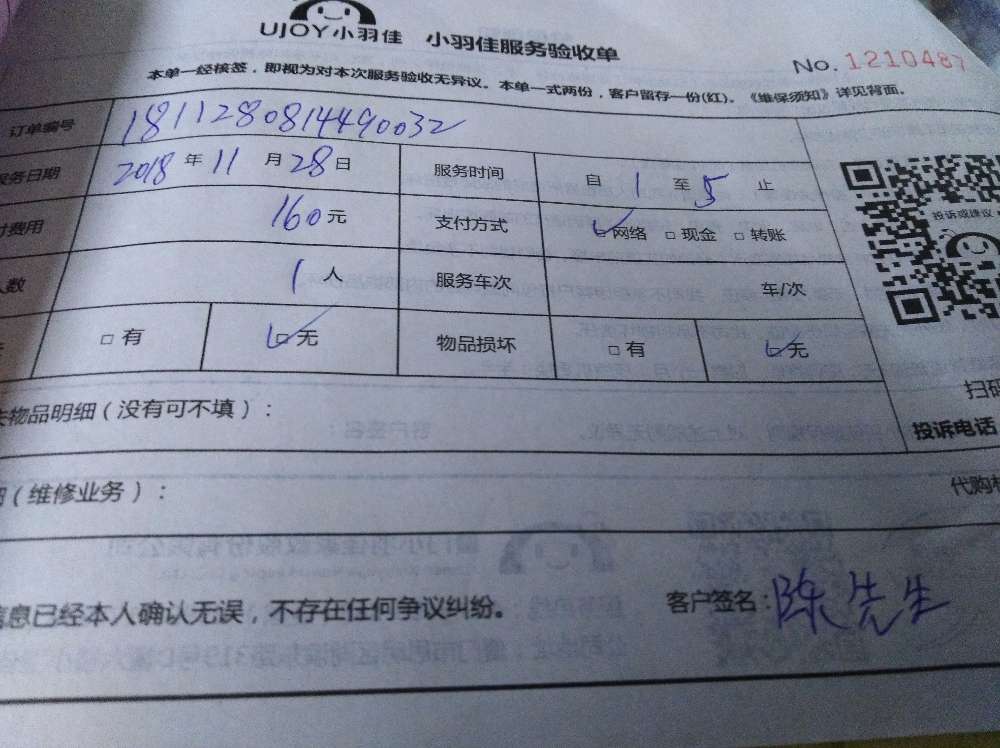 UJOY小羽佳 小羽佳服务验收单
No. 1210487
本单一经核签，即视为对本次服务验收无异议。本单一式两份，客户留存一份(红)。《维保须知》详见背面。
订单编号 1811280814490032
务日期 2018 年 11 月 28 日 服务时间 自 1 至 5 止
费用 160 元 支付方式 ☑网络 □现金 □转账
人数 1 人 服务车次 车/次
□有 ☑无 物品损坏 □有 ☑无
投诉或建议
扫码
物品明细（没有可不填）：
投诉电话
（维修业务）：
代购
信息已经本人确认无误，不存在任何争议纠纷。
客户签名：陈先生